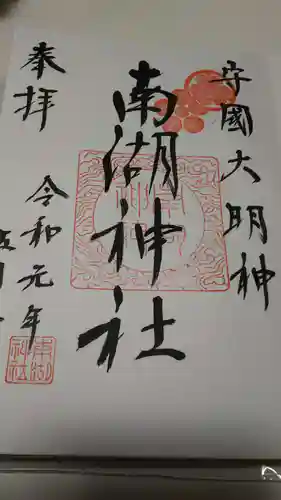 守國大明神
南湖神社
奉拝
令和元年
南湖
神社